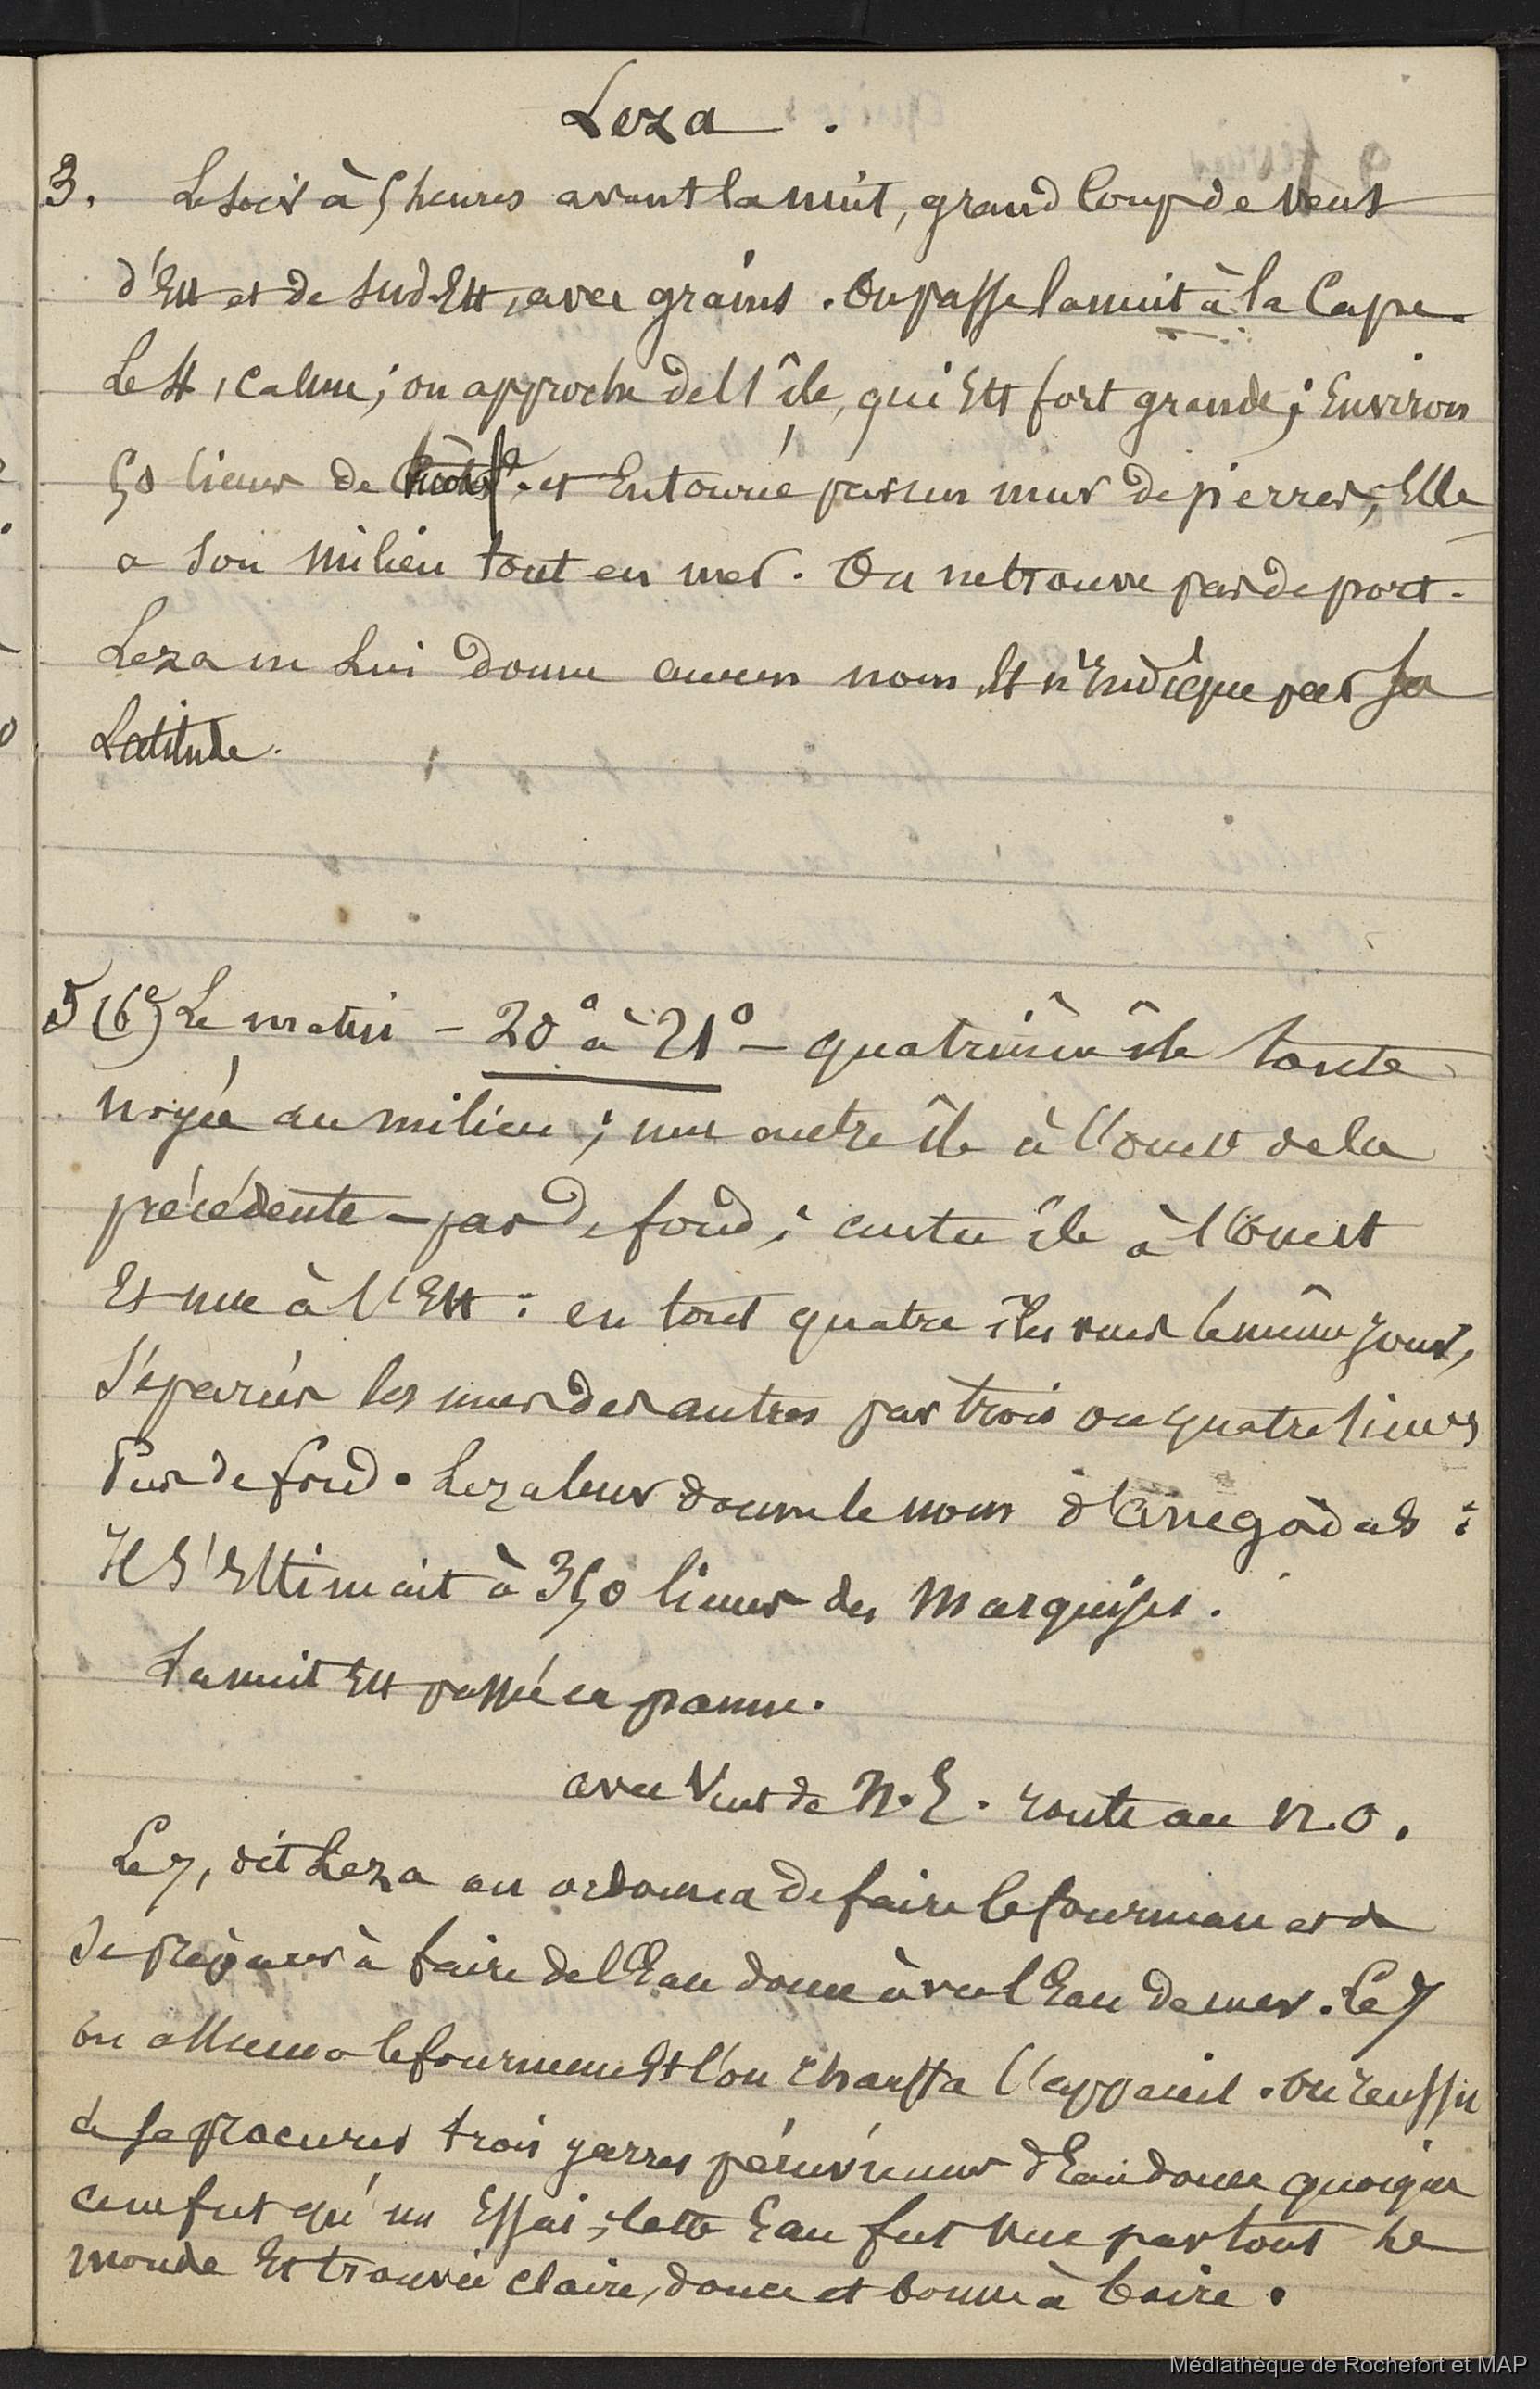 Leza.
3. Le soir à 5 heures avant la nuit, grand coup de vent
d'Est et de Sud-Est, avec grains. On passe la nuit à la Cape.
Le 4, calme; on approche de l'île, qui Est fort grande; Environ
50 lieues de et Entourée par un mur de pierres; Elle
a son milieu tout en mer. On ne trouve pas de port.
Leza ne lui donne aucun nom Et n'Indique pas sa
Latitude.
5 (6e) Le matin – 20° à 21° – quatrième île toute
noyée au milieu; une autre île à l'ouest de la
précédente – pas de fond; autre île à l'ouest
Et une à l'Est: en tout quatre îles vues le même jour,
séparées les unes des autres par trois ou quatre lieues
Pas de fond. Leza leur donne le nom d'Anegadas:
Il s'Estimait à 350 lieues des Marquises.
La nuit Est passée en panne.
avec Vent de N.E. route au N.O.
Le 7, dit Leza on ordonna de faire le fourneau et de
se préparer à faire de l'Eau douce avec l'Eau de mer. Le 7
on alluma le fourneau Et l'on chauffa l'appareil. On réussit
à se procurer trois jarres péruviennes d'Eau douce quoique
ce ne fut qu'un Essai; cette Eau fut vue par tout le
monde Et trouvée claire, douce et bonne à boire.
Médiathèque de Rochefort et MAP